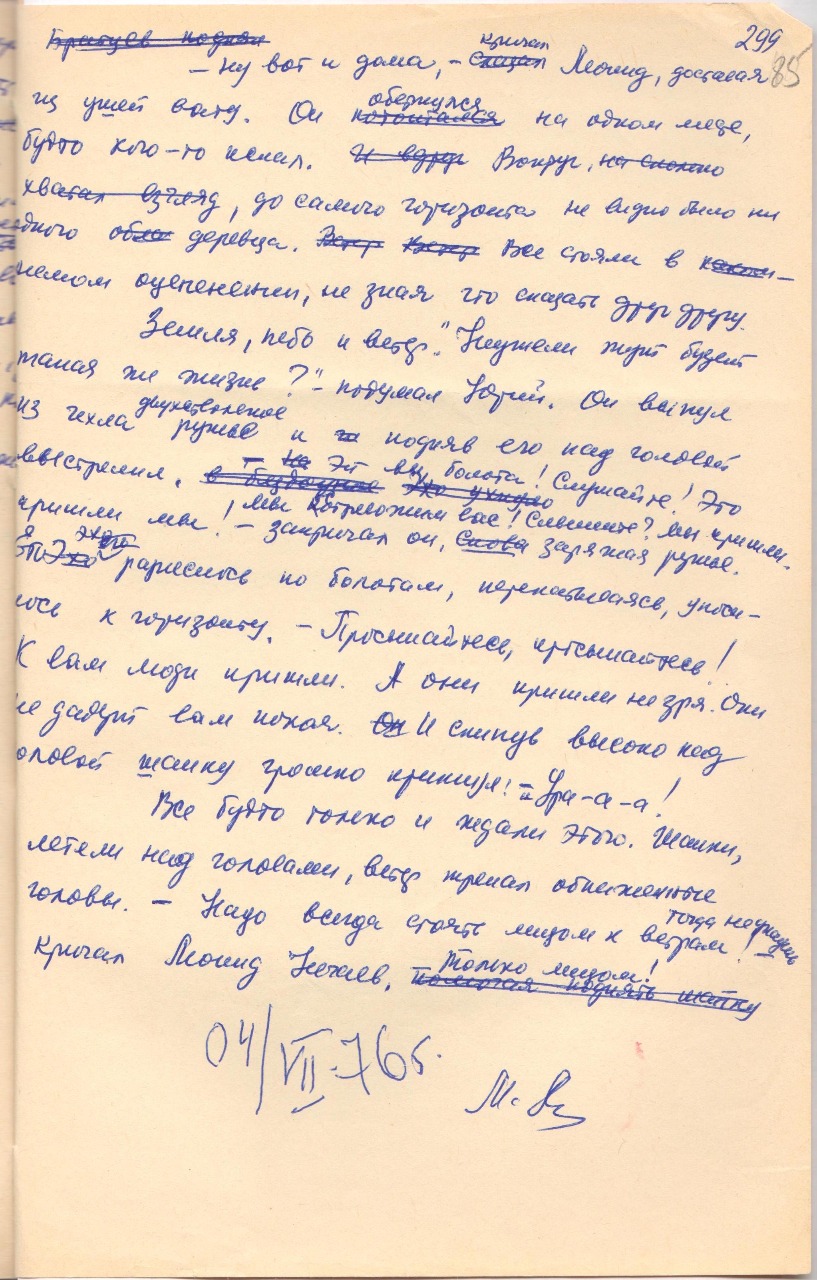 299
85
Братцев поднял
кричал
– Ну вот и дома, – сказал Леонид, доставая
из ушей вату. Он
обернулся
на одном месте,
будто кого-то искал. И вдруг Вокруг, на сколько
хватал взгляд, до самого горизонта не видно было ни
одного деревца. Ветер Ветер Все стояли в каком-
немом оцепенении, не зная что сказать друг другу.
Земля, небо и ветер. "Неужели тут будет
такая же жизнь?" – подумал Юрий. Он вынул
двухствольное
из чехла ружье и подняв его над головой
выстрелил. – Эй вы, болота! Слушайте! Это
пришли мы! Мы встревожили вас! Слышите? Мы пришли. –
закричал он, снова заряжая ружье.
Эхо разнеслось по болотам, перекатываясь, унося-
лось к горизонту. – Просыпайтесь, просыпайтесь!
К вам люди пришли. А они пришли не зря. Они
не дадут вам покоя. Он И скинув высоко над
головой шапку громко крикнул: – Ура-а-а!
Все будто только и ждали этого. Шапки,
летели над головами, ветер трепал обнаженные
головы. – Надо всегда стоять лицом к ветрам!
тогда не упадешь –
кричал Леонид Нечаев, – Только лицом!
помогая поднять шапку
04/VII-76г.